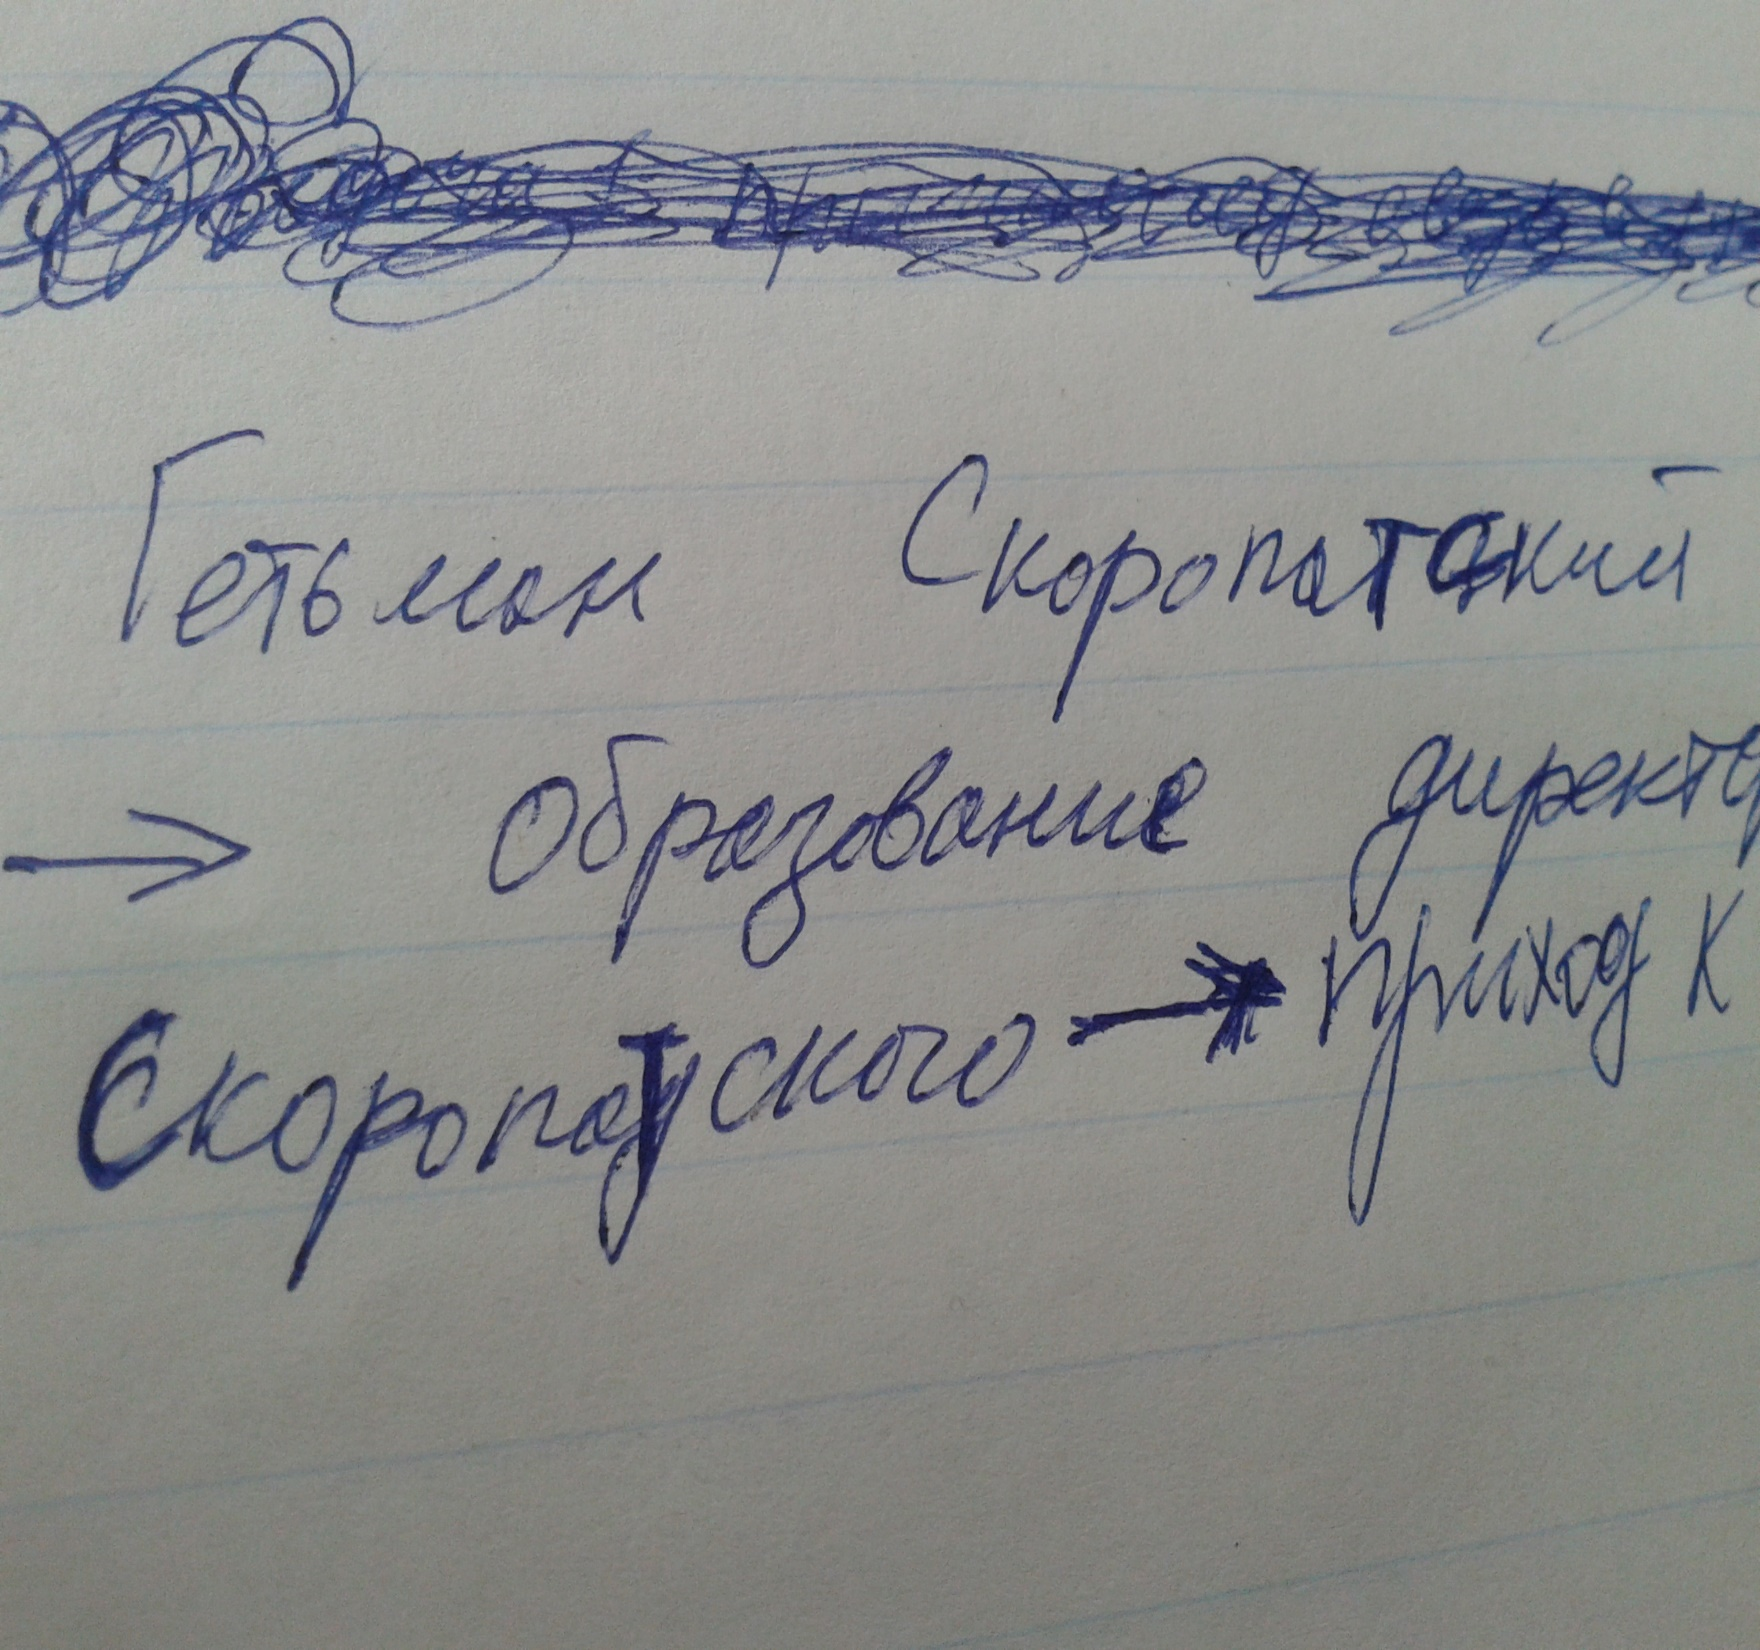 Гетьман Скоропатский
→ Образование директ
Скоропатского → приход к